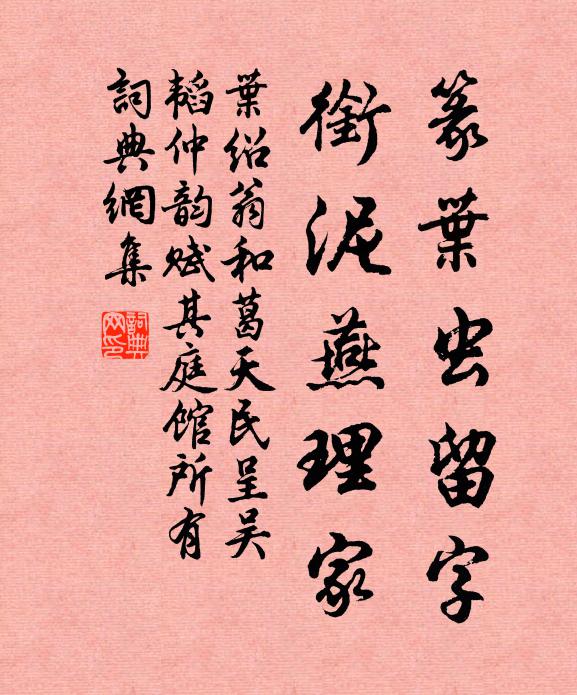 篆葉虫留字
銜泥燕理家
葉绍翁和葛天民呈吴
韬仲韵赋其庭馆所有
詞典網集
詞典网印